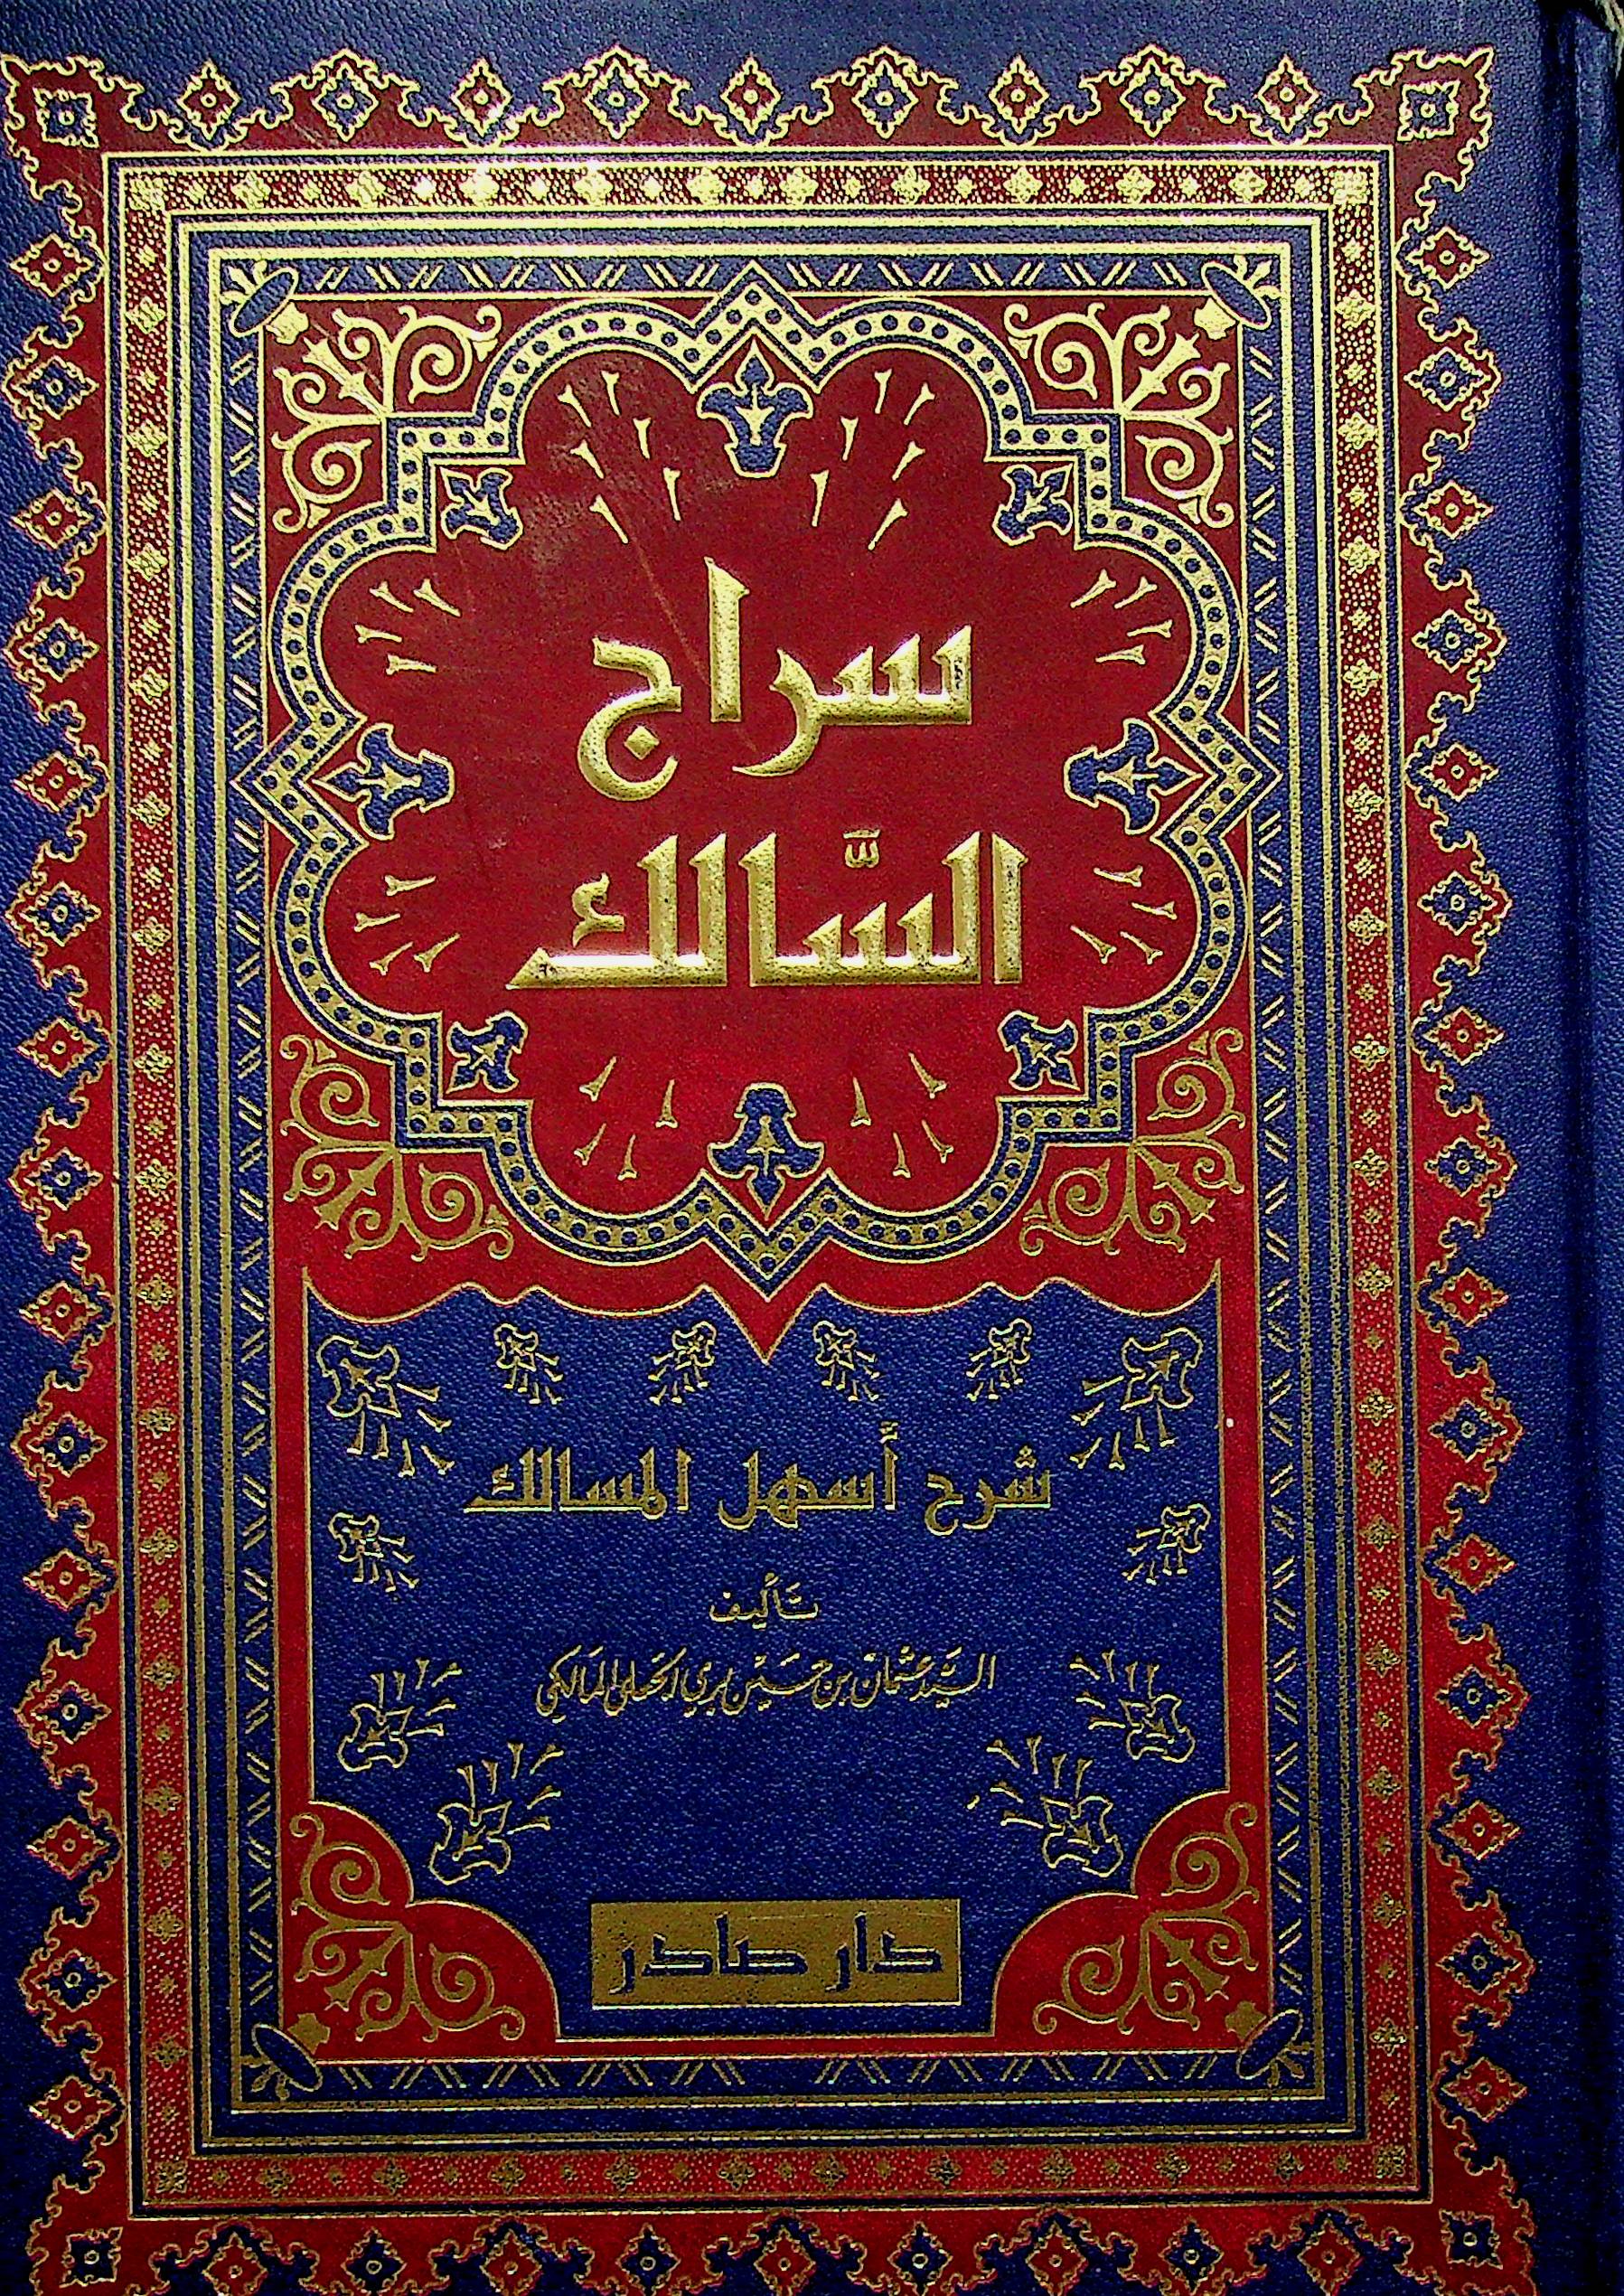 سراج
السَّالك
شرح أَسهل المسالك
تأليف
السيّد عثمان بن حسنين بري الجعلي المالكي
دار صادر